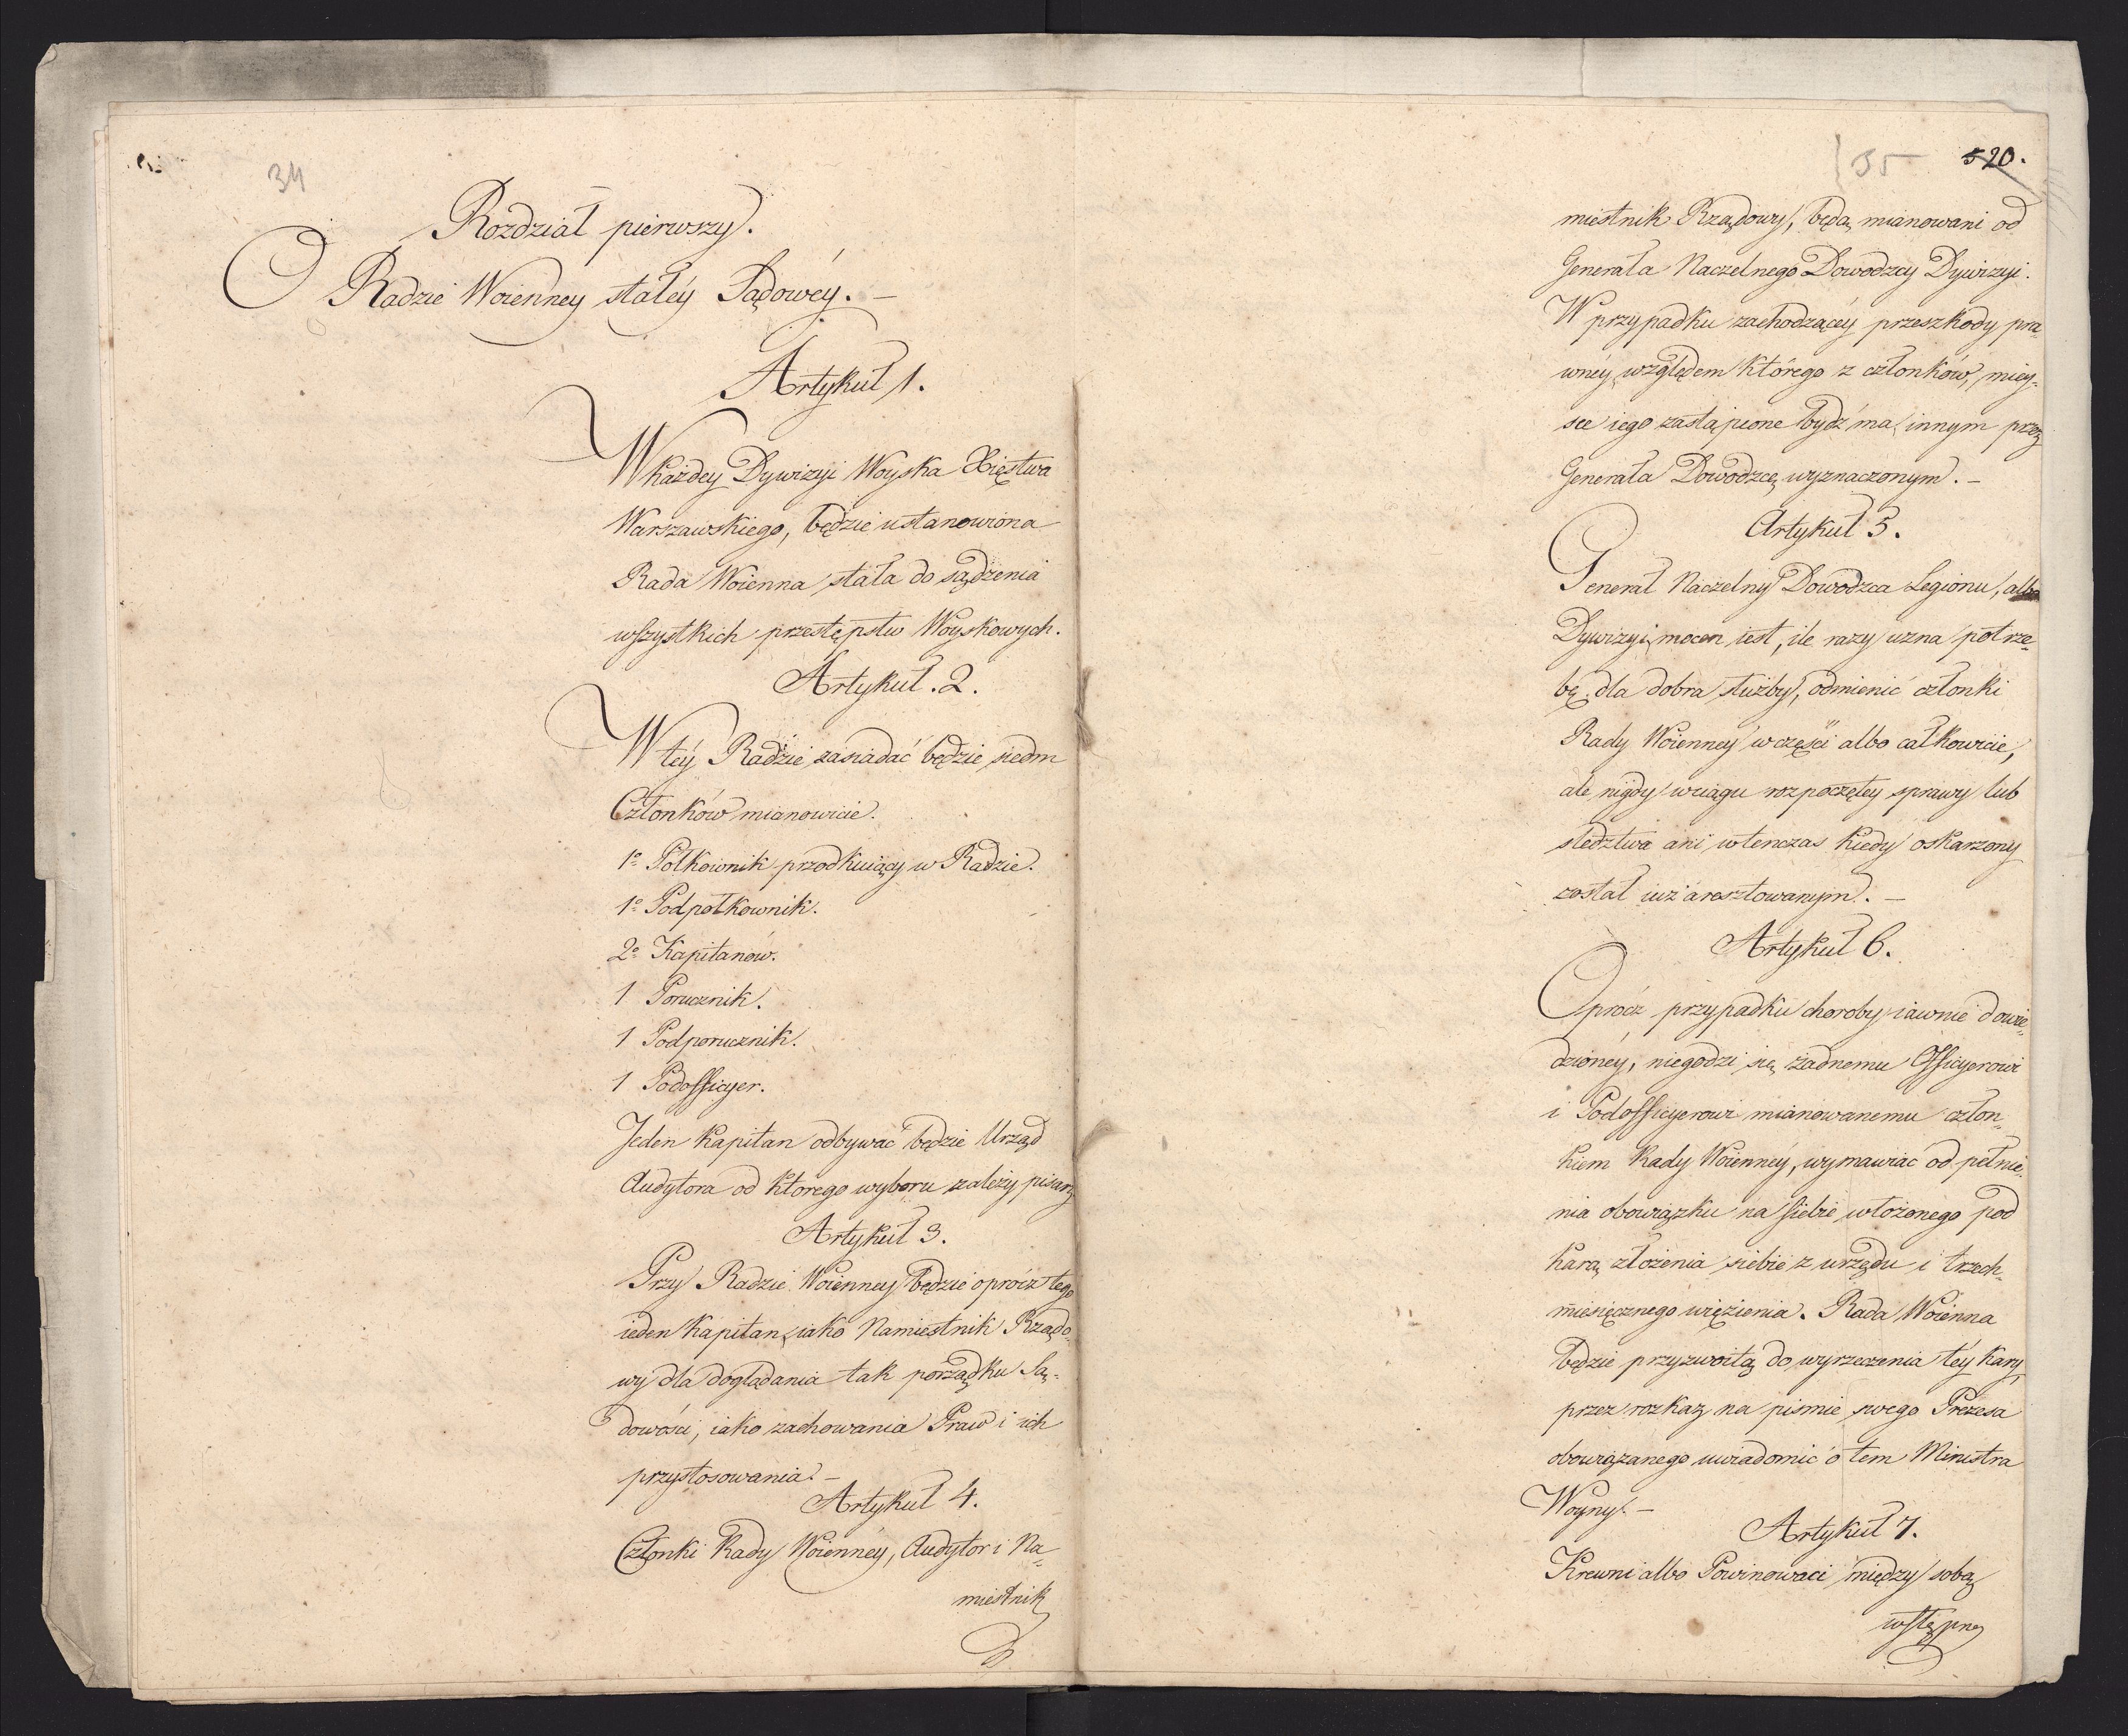 34
Rozdział pierwszy.
O Radzie Woienney stałéy Sądowéy. –
Artykuł 1.
W każdey Dywizyi Woyska Xięstwa
Warszawskiego, będzie ustanowiona
Rada Woienna stała do sądzenia
wszystkich przestępstw Woyskowych.
Artykuł. 2.
W téy Radzie zasiadać będzie siedm
Członków mianowicie.
1º Półkownik przodkuiący w Radzie.
1º Podpołkownik.
2º Kapitanów.
1 Porucznik.
1 Podporucznik.
1 Podofficyer.
Jeden Kapitan odbywać będzie Urząd
Audytora od ktorego wyboru zależy pisarz
Artykuł 3.
Przy Radzie Woienney będzie oprócz tego
ieden Kapitan, iako Namiestnik Rządo-
wy dla doglądania tak porządku Są-
dowości, iako zachowania Praw i ich
przystosowania. –
Artykuł 4.
Członki Rady Woiennéy, Audytor i Na-
miestnik
55 520.
miestnik Rządowy, będą mianowani od
Generała Naczelnego Dowodzcy Dywizyi.
W przypadku zachodzącéy przeszkody pra-
wnéy, względem którego z członków, miey-
sce iego zastąpione bydź ma innym przez
Generała Dowodzcę wyznaczonym. –
Artykuł 5.
Generał Naczelny Dowodzca Legionu, albo
Dywizyi, mocen iest, ile razy uzna potrze-
bę dla dobra służby, odmienić członki
Rady Woienney w części albo całkowicie,
ale nigdy wciągu rozpoczętey sprawy lub
sledztwa ani wtenczas kiedy oskarzony
został iuż aresztowanym. –
Artykuł 6.
Oprócz przypadku choroby iawnie dowie-
dzionéy, niegodzi się żadnemu Officyerowi
i Podofficyerowi mianowanemu człon-
kiem Rady Woiennéy, wymawiać od pełnie-
nia obowiązku na siebie włożonego pod
karą złożenia siebie z urzędu i trzech-
miesięcznego więzienia. Rada Woienna
będzie przyzwoitą do wyrzeczenia téy kary,
przez rozkaz na pismie swego Prezesa
obowiązanego uwiadomić o tem Ministra
Woyny. –
Artykuł 7.
Krewni albo Powinowaci między sobą
wstępne